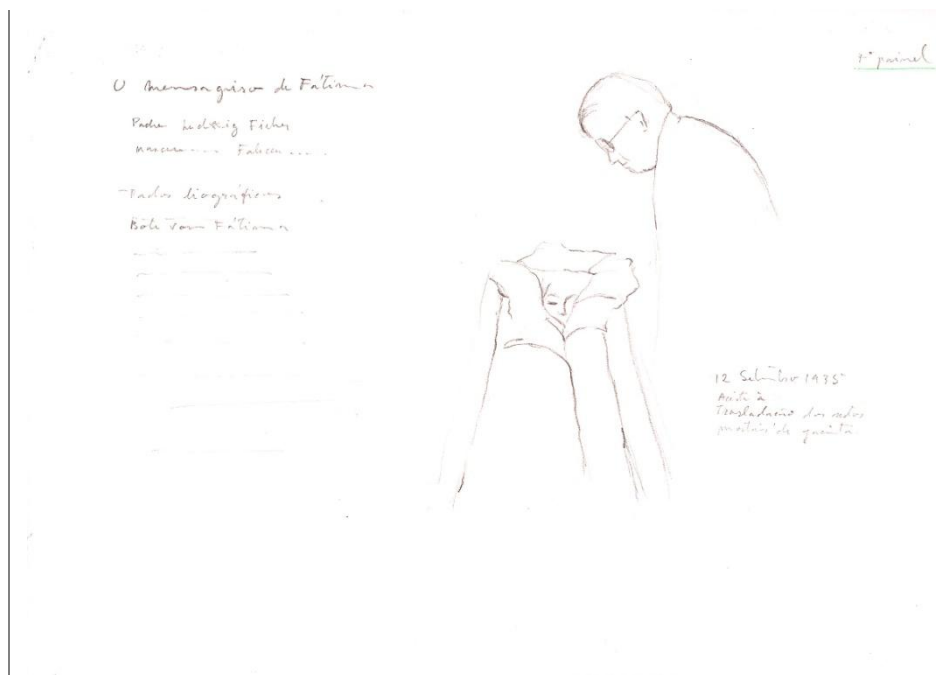 1º painel
O mensageiro de Fátima
Padre Ludwig Fischer
nasceu.... Faleceu....
Dados biográficos
Bote von Fátima
12 Setembro 1935
Assiste à
Trasladação dos restos
mortais de Jacinta